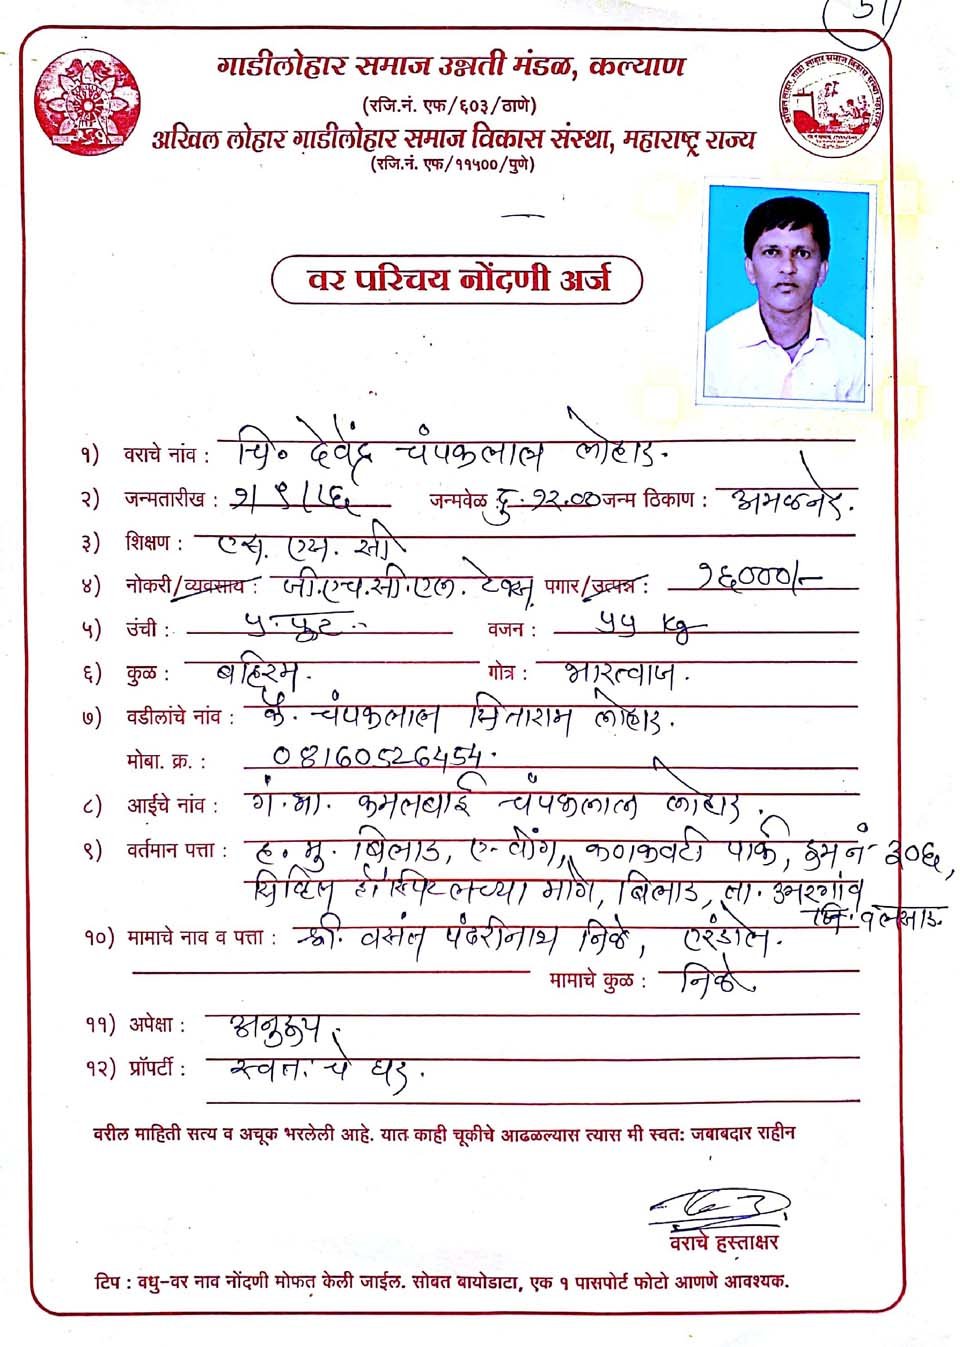 51
गाडीलोहार समाज उन्नती मंडळ, कल्याण
(रजि.नं. एफ/६०३/ठाणे)
अखिल लोहार गाडीलोहार समाज विकास संस्था, महाराष्ट्र राज्य
(रजि.नं. एफ/११५००/पुणे)
वर परिचय नोंदणी अर्ज
१) वराचे नांव : चि. देवेंद्र चंपकलाल लोहार.
२) जन्मतारीख : जन्मवेळ दु. १२.०० जन्म ठिकाण : अमळनेर.
३) शिक्षण : एस. एस. सी
४) नोकरी/व्यवसाय : जी.एच.सी.एल. टेक्स. पगार/उत्पन्न : १६०००/-
५) उंची : ५. फुट वजन : ५५ kg
६) कुळ : बहिरम. गोत्र : भारत्वाज.
७) वडीलांचे नांव : कै. चंपकलाल सिताराम लोहार.
मोबा. क्र. : 08160526454.
८) आईचे नांव : गं.भा. कमलबाई चंपकलाल लोहार.
९) वर्तमान पत्ता : ह. मु. बिलाड, ए-वींग, कणकवटी पार्क, रुम नं- ३०६,
सिव्हिल हॉस्पिटलच्या मागे, बिलाड, ता. उमरगांव
जि. वलसाड.
१०) मामाचे नाव व पत्ता : श्री. वसंत पंढरीनाथ निळे, एरंडोल.
मामाचे कुळ : निळे
११) अपेक्षा : अनुरूप.
१२) प्रॉपर्टी : स्वतः चे घर.
वरील माहिती सत्य व अचूक भरलेली आहे. यात काही चूकीचे आढळल्यास त्यास मी स्वतः जबाबदार राहीन
वराचे हस्ताक्षर
टिप : वधु-वर नाव नोंदणी मोफत केली जाईल. सोबत बायोडाटा, एक १ पासपोर्ट फोटो आणणे आवश्यक.